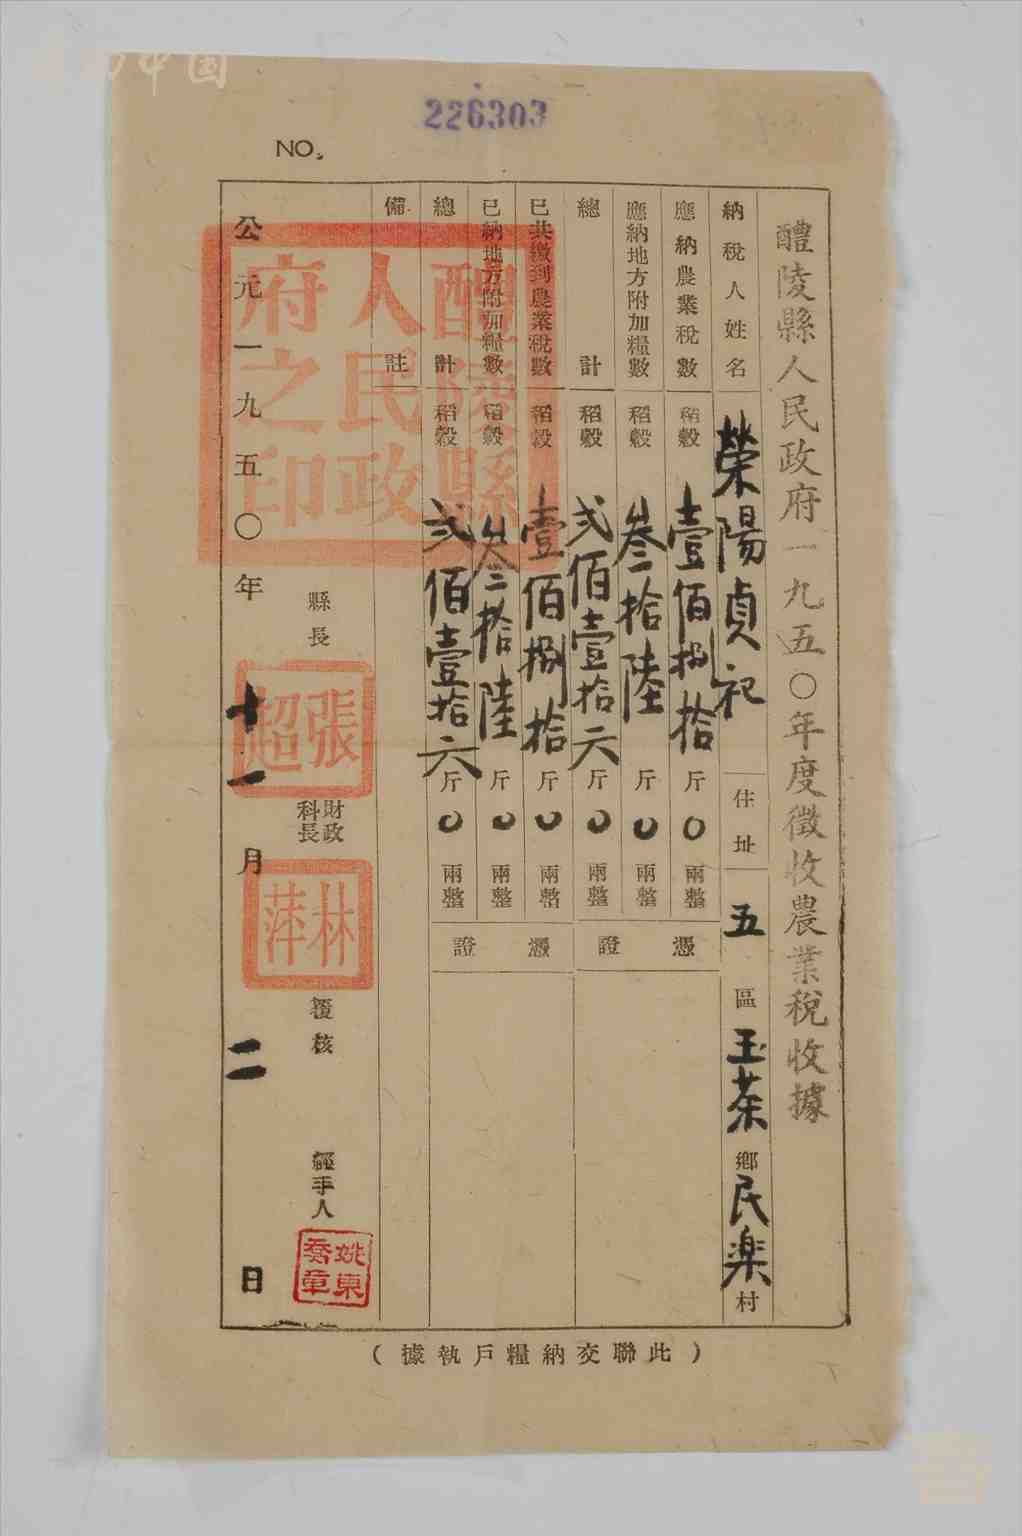 中国
NO. 226303
醴陵縣人民政府一九五〇年度徵收農業稅收據
納稅人姓名 榮陽貞祀 住址 五區玉茶鄉民楽村
應納農業稅數 稻穀壹佰捌拾斤0兩整
應納地方附加糧數 稻穀叁拾陸斤0兩整
總計 稻穀弍佰壹拾六斤0兩整
憑證
已共繳到農業稅數 稻穀壹佰捌拾斤0兩整
已納地方附加糧數 稻穀叁拾陸斤0兩整
總計 稻穀弍佰壹拾六斤0兩整
憑證
備註
縣長 張超
財政科長 林萍
覆核
經手人 姚東喬章
公元一九五〇年十一月二日
醴陵縣人民政府之印
(此聯交納糧戶執據)